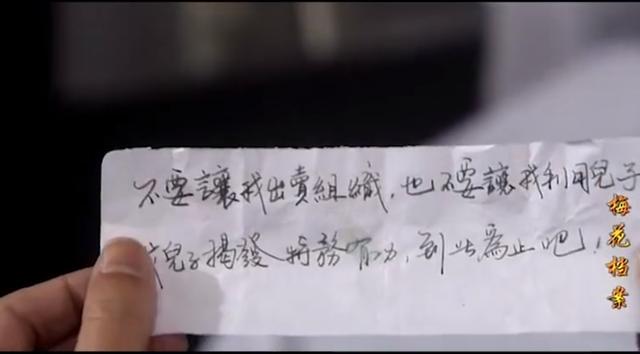 不要讓我出賣組織，也不要讓我利用兒子
我兒子揭發特務有功，到此為止吧！
梅花档案